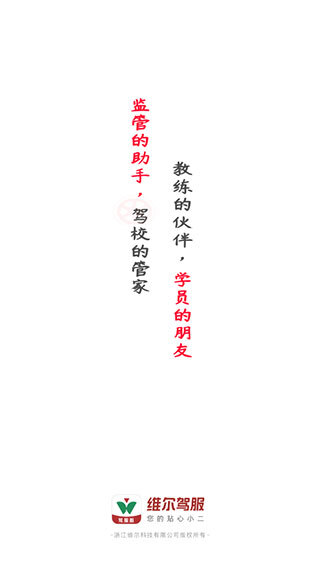 监管的助手，驾校的管家
教练的伙伴，学员的朋友
维尔驾服
您的贴心小二
驾服
-浙江维尔科技有限公司版权所有-